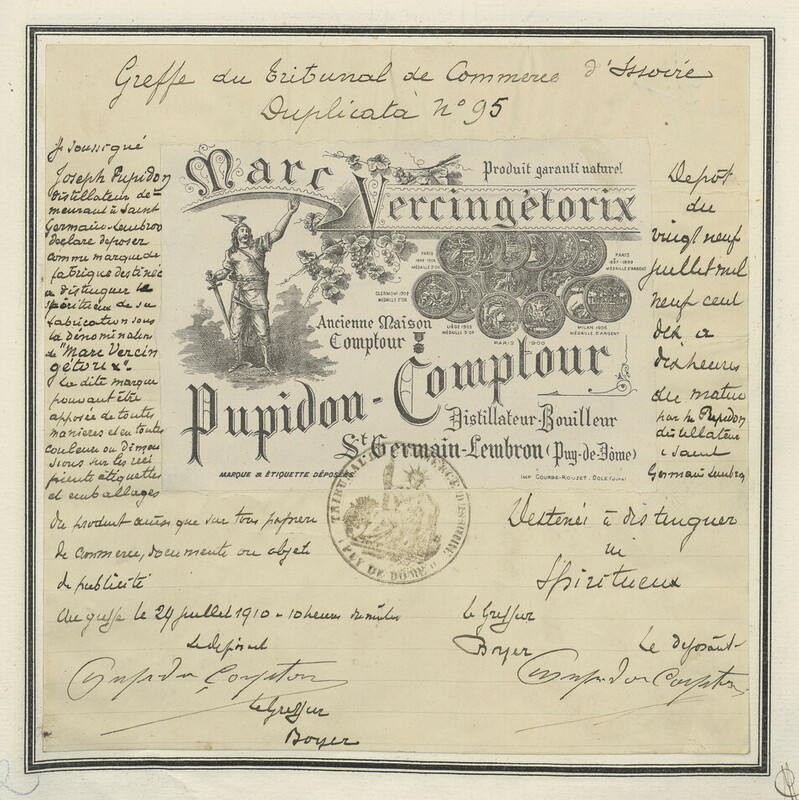 Greffe du Tribunal de Commerce d'Issoire
Duplicata N° 95
Je soussigné
Joseph Pupidon
distillateur de-
meurant à Saint
Germain-Lembron
déclare déposer
comme marque de
fabrique destinée
a distinguer le
spiritueux de sa
fabrication sous
la dénomination
de "Marc Vercin
gétorix".
La dite marque
pouvant être
apposée de toutes
manières et en toutes
couleurs ou dimen
sions sur les réci
pients étiquettes
et emballages
du produit ainsi que sur tous papiers
de commerce, documents ou objets
de publicité
Au greffe le 29 juillet 1910 - 10 heures du matin
Le déposant
Pupidon Comptour
Le Greffier
Boyer
Marc
Vercingétorix
Produit garanti naturel
PARIS
MÉDAILLE D'OR
PARIS
MÉDAILLE D'ARGENT
CLERMONT 1905
MÉDAILLE D'OR
LIÈGE 1905
MÉDAILLE D'OR
MILAN 1906
MÉDAILLE D'ARGENT
PARIS 1900
Ancienne Maison
Comptour
Pupidon-Comptour
Distillateur-Bouilleur
St Germain-Lembron (Puy-de-Dôme)
MARQUE & ÉTIQUETTE DÉPOSÉES
IMP. COURBE-ROUZET. DOLE (JURA)
TRIBUNAL DE COMMERCE D'ISSOIRE
(PUY DE DOME)
Depôt
du
vingt neuf
juillet mil
neuf cent
dix a
dix heures
du matin
par M. Pupidon
distillateur
a Saint
Germain Lembron
Destinée à distinguer
un
Spiritueux
Le Greffier
Boyer
Le déposant
Pupidon Comptour